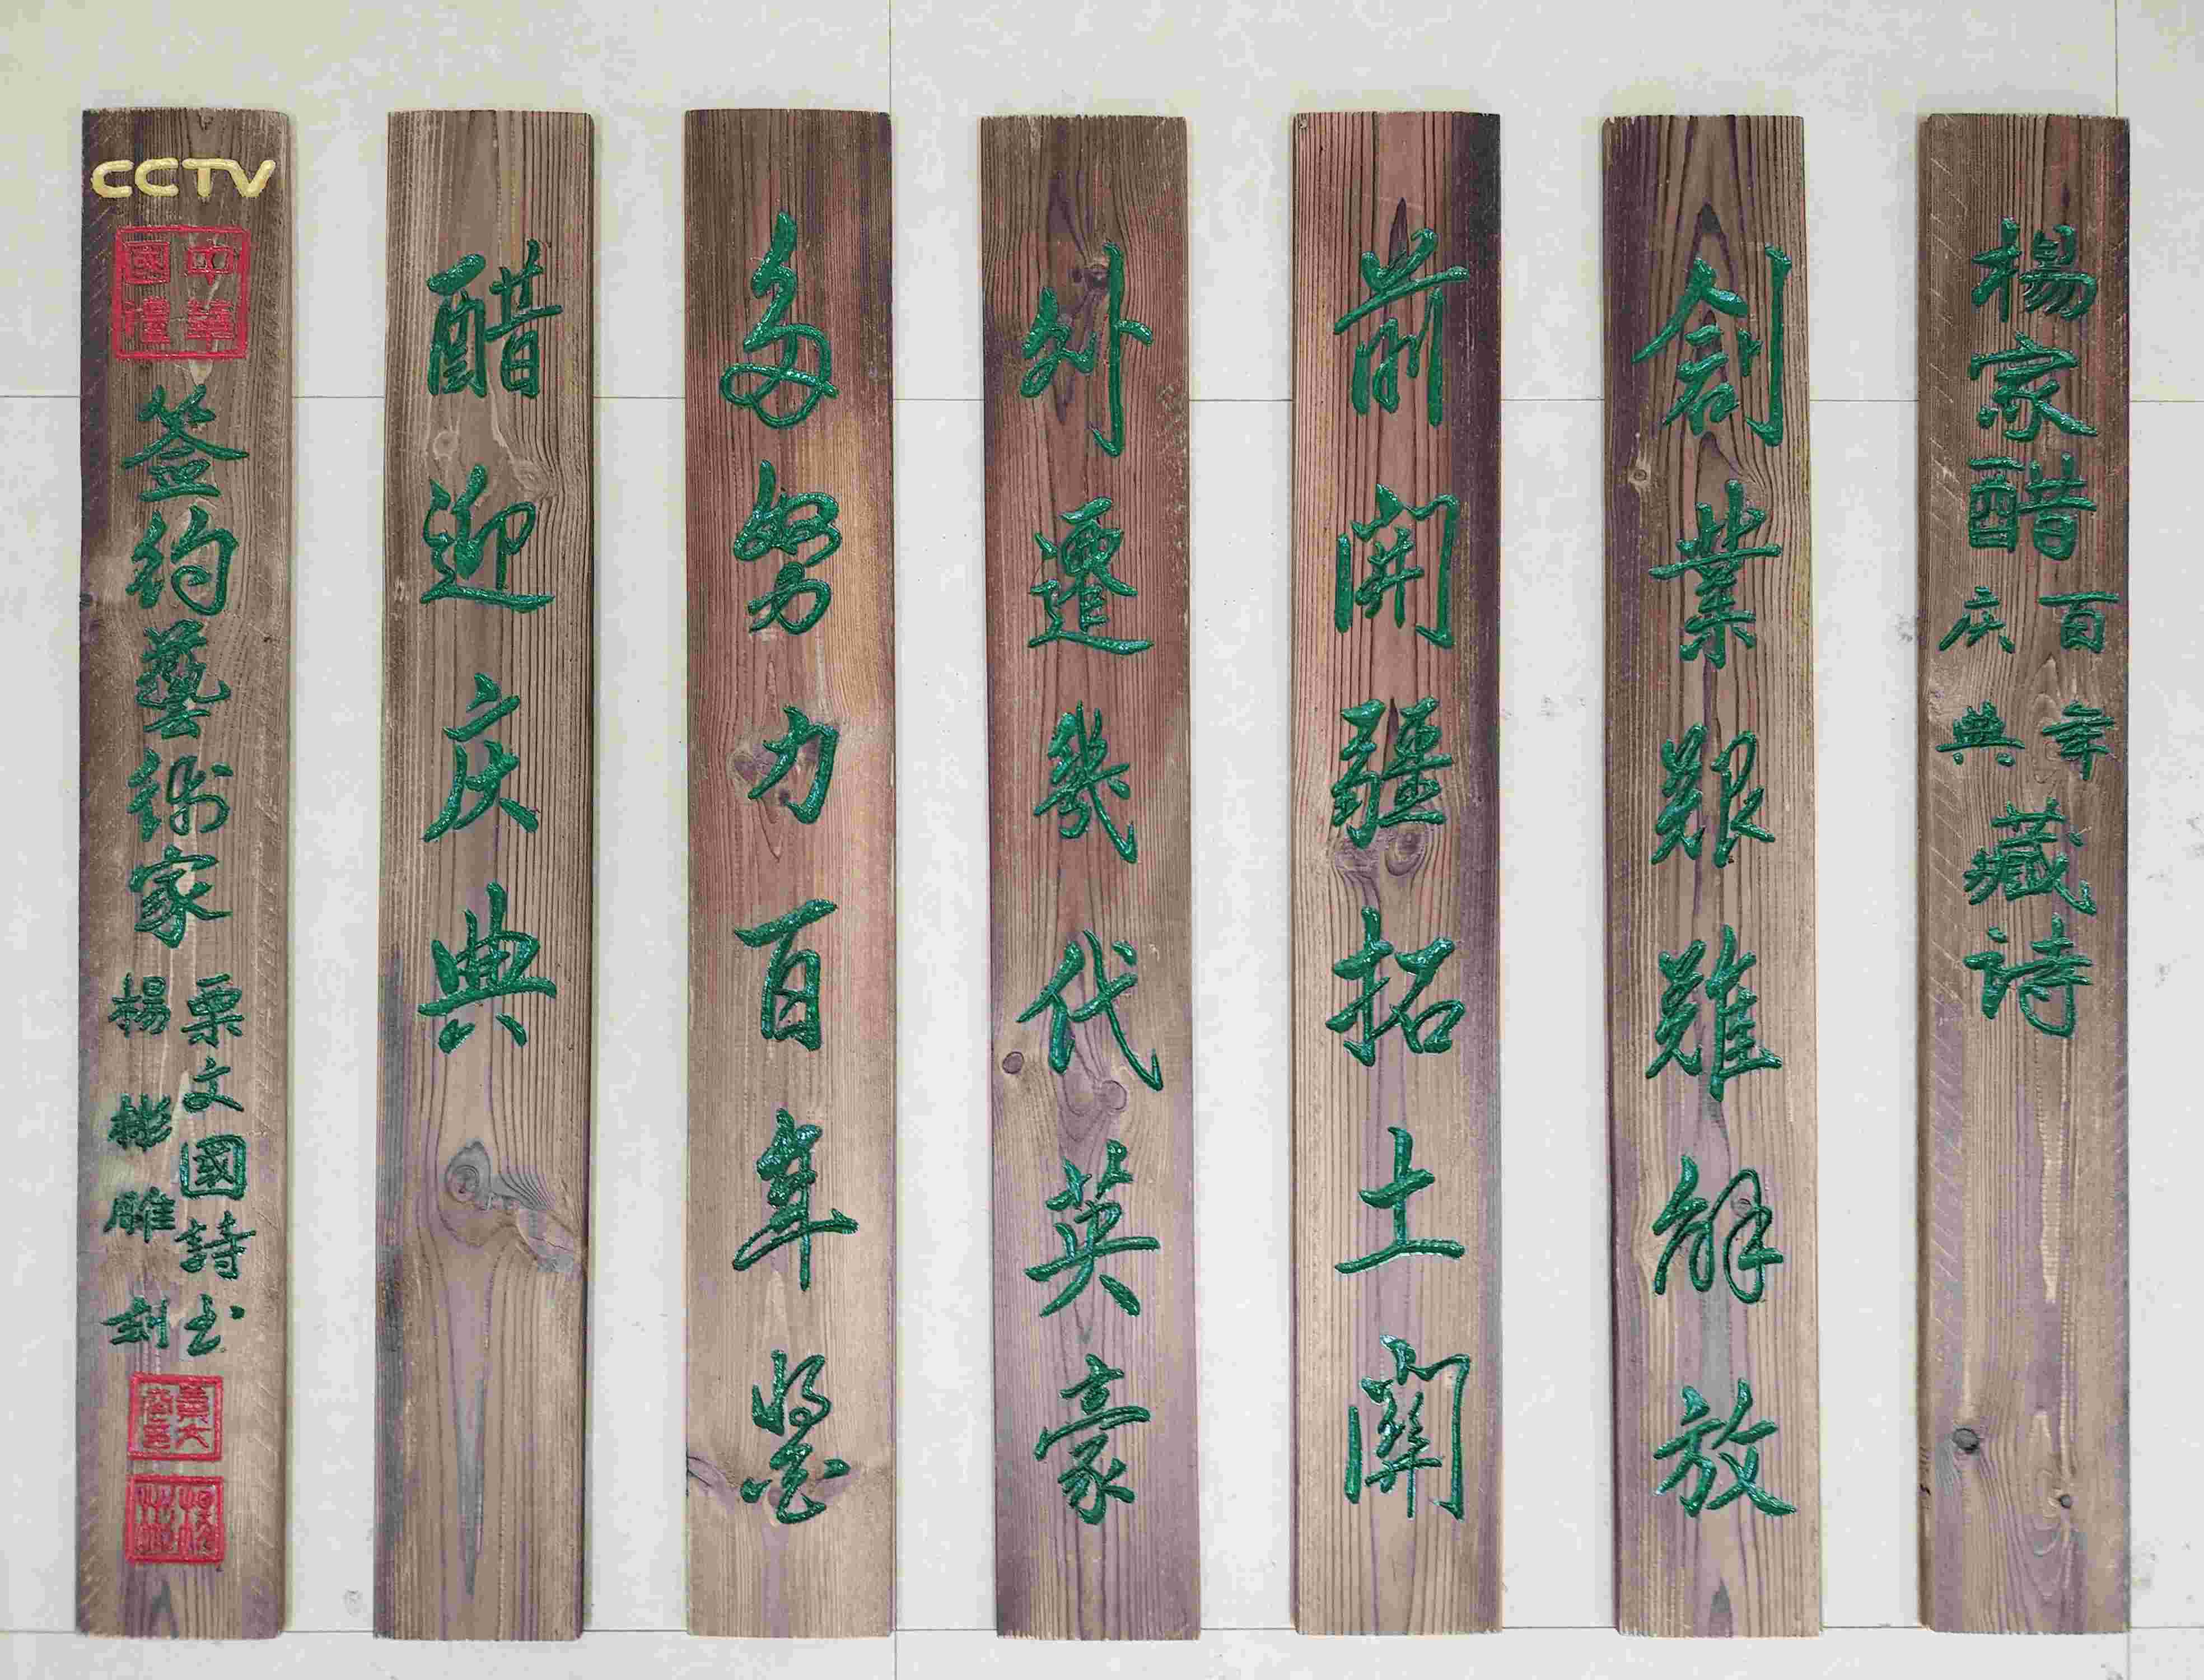 楊家醋
百年
庆典
藏诗
創業艱難解放
前開疆拓土關
外遷幾代英豪
多努力百年醬
醋迎庆典
CCTV
中華
國禮
签约藝術家
栗文國詩书
楊彬雕刻